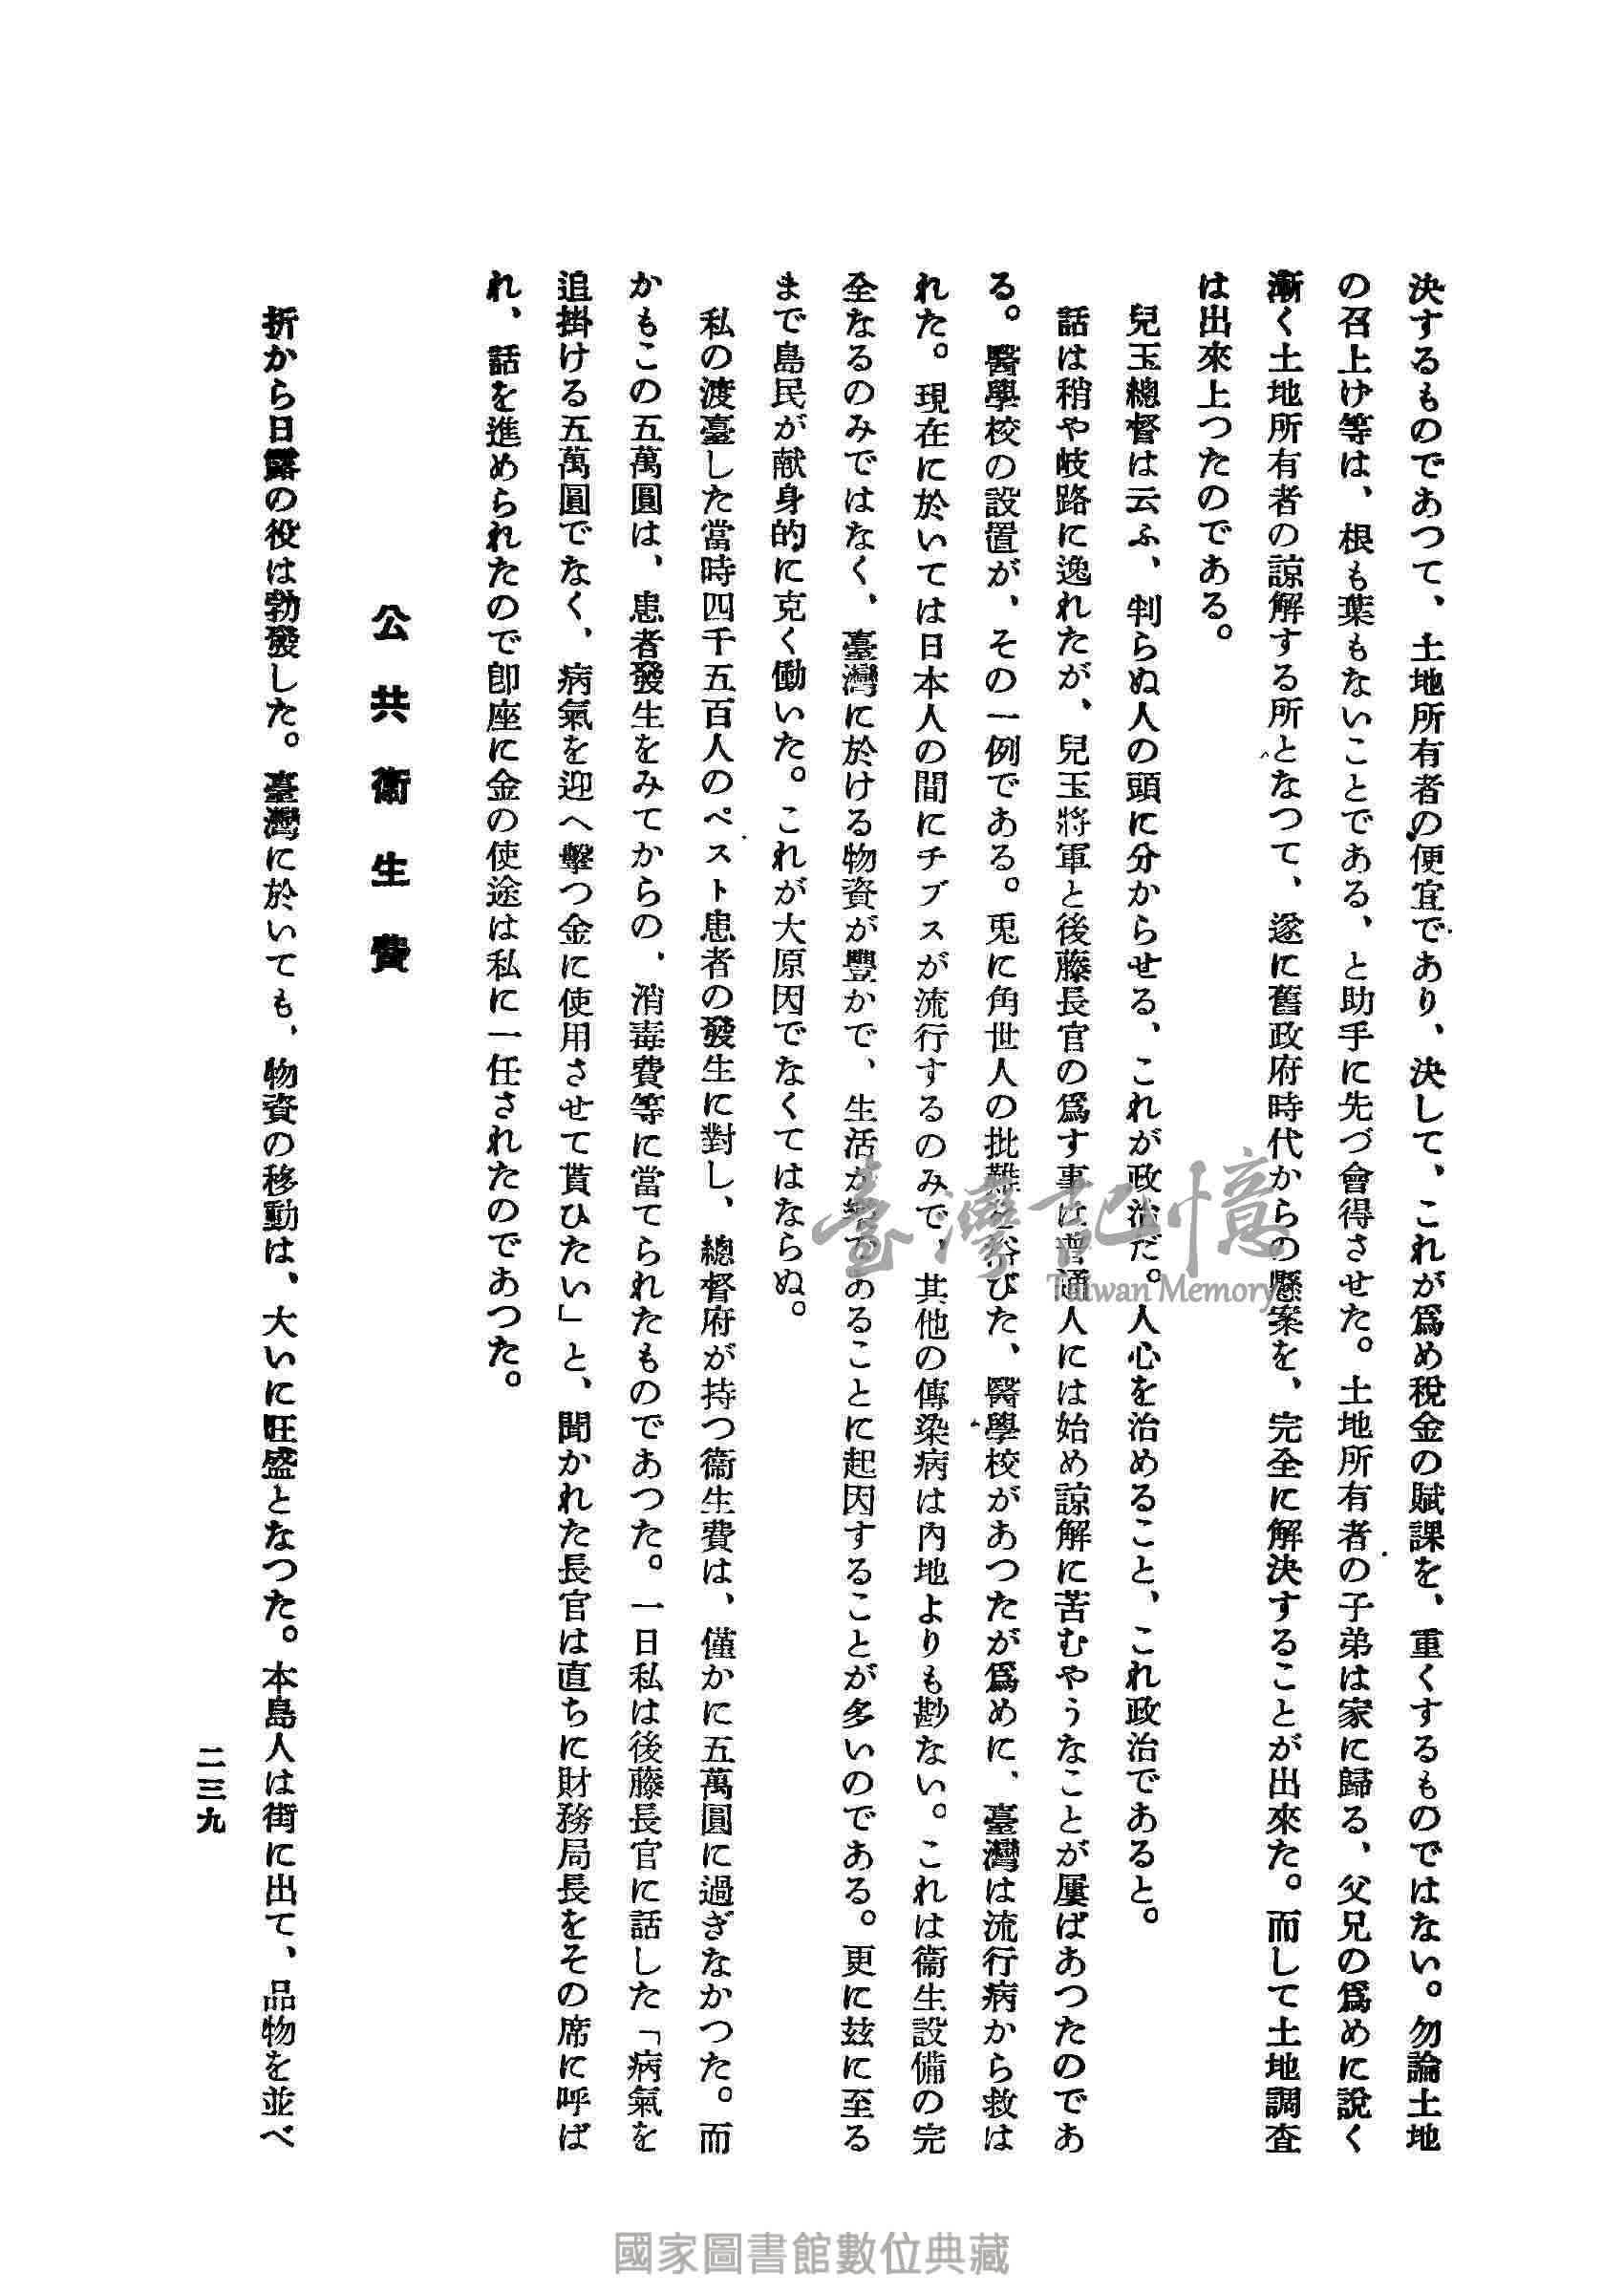 決するものであつて、土地所有者の便宜であり、決して、これが爲め税金の賦課を、重くするものではない。勿論土地
の召上げ等は、根も葉もないことである、と助手に先づ會得させた。土地所有者の子弟は家に歸る、父兄の爲めに說く
漸く土地所有者の諒解する所となつて、遂に舊政府時代からの懸案を、完全に解決することが出來た。而して土地調査
は出來上つたのである。
兒玉總督は云ふ、判らぬ人の頭に分からせる、これが政治だ。人心を治めること、これ政治であると。
話は稍や岐路に逸れたが、兒玉將軍と後藤長官の爲す事は普通人には始め諒解に苦むやうなことが屢ばあつたのであ
る。醫學校の設置が、その一例である。兎に角世人の批難を浴びた、醫學校があつたが爲めに、臺灣は流行病から救は
れた。現在に於いては日本人の間にチブスが流行するのみで、其他の傳染病は內地よりも尠ない。これは衞生設備の完
全なるのみではなく、臺灣に於ける物資が豐かで、生活が樂であることに起因することが多いのである。更に玆に至る
まで島民が献身的に克く働いた。これが大原因でなくてはならぬ。
私の渡臺した當時四千五百人のペスト患者の發生に對し、總督府が持つ衞生費は、僅かに五萬圓に過ぎなかつた。而
かもこの五萬圓は、患者發生をみてからの、消毒費等に當てられたものであつた。一日私は後藤長官に話した「病氣を
追掛ける五萬圓でなく、病氣を迎へ擊つ金に使用させて貰ひたい」と、聞かれた長官は直ちに財務局長をその席に呼ば
れ、話を進められたので卽座に金の使途は私に一任されたのであつた。
公共衞生費
折から日露の役は勃發した。臺灣に於いても、物資の移動は、大いに旺盛となつた。本島人は街に出て、品物を並べ
二三九
臺灣記憶
Taiwan Memory
國家圖書館數位典藏